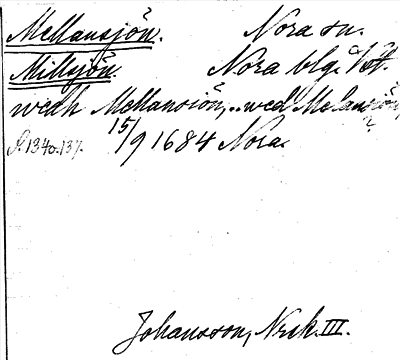 Mellansjön. Nora sn.
Millsjön. Nora blg. Vstm.
wedh Mellansiön, .. wed Melansiön
s. 134 o. 137. 15/9 1684 Nora.
Johansson, Nrck. III.